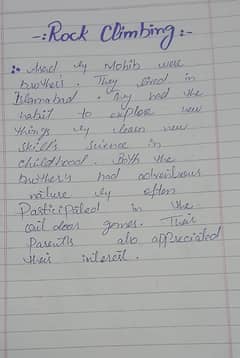 -: Rock Climbing :-
:- Asad & Mohib were
brother's. They lived in
Islamabad. They had the
habit to explore new
things & learn new
skill's science in
childhood. Both the
brother's had adventrous
nature & often
Participated in the
out door games. Their
Parent's also appreciated
their interest.